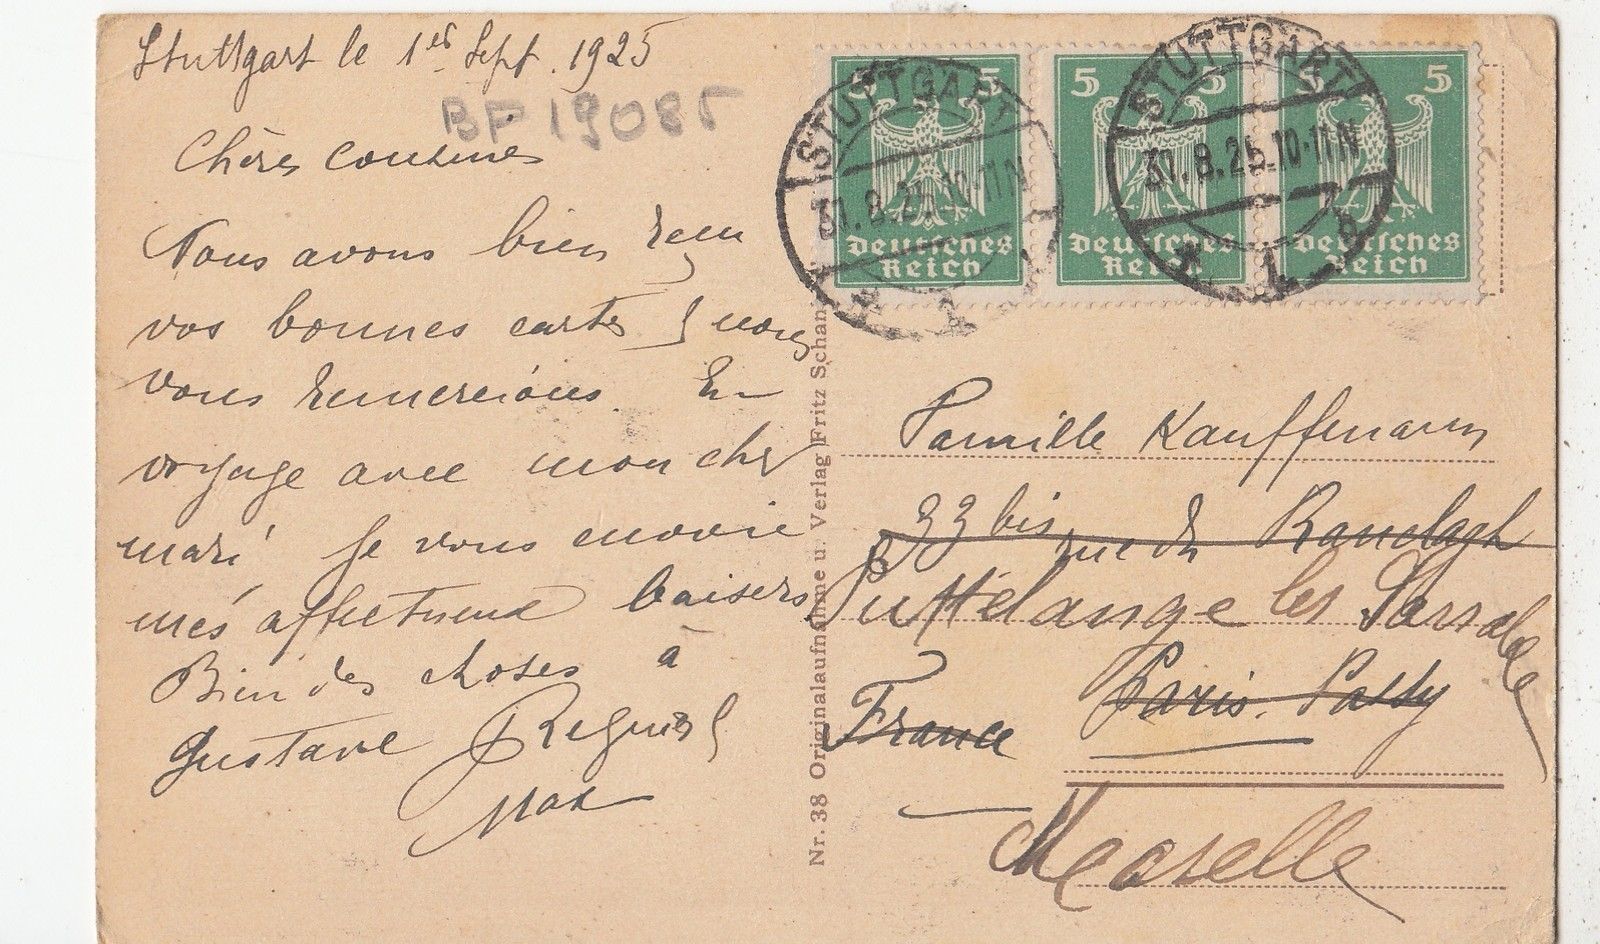 Stuttgart le 1er Sept. 1925
BF 19085
Chères cousines
Nous avons bien reçu
vos bonnes cartes & nous
vous remercions. En
voyage avec mon cher
mari je vous envoie
mes affectueux baisers
Bien des choses à
Gustave
Max
5 5
Deutsches
Reich
5 5
Deutsches
Reich
5 5
Deutsches
Reich
STUTTGART
31.8.25.10-11N
1
STUTTGART
31.8.25.10-11N
1
Nr. 38 Originalaufnahme u. Verlag Fritz Schan
Famille Kauffmann
33 bis rue du Ranelagh
Puttelange les Sarralbe
Paris. Passy
France
Moselle